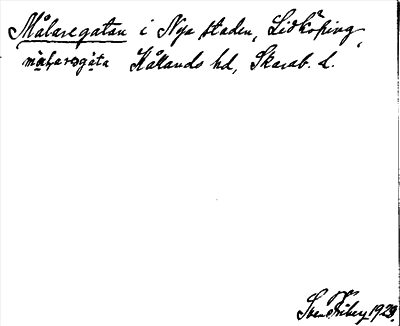 Målaregatan i Nya staden, Lidköping,
Kållands hd, Skarab. l.
Sven Friberg 1923.